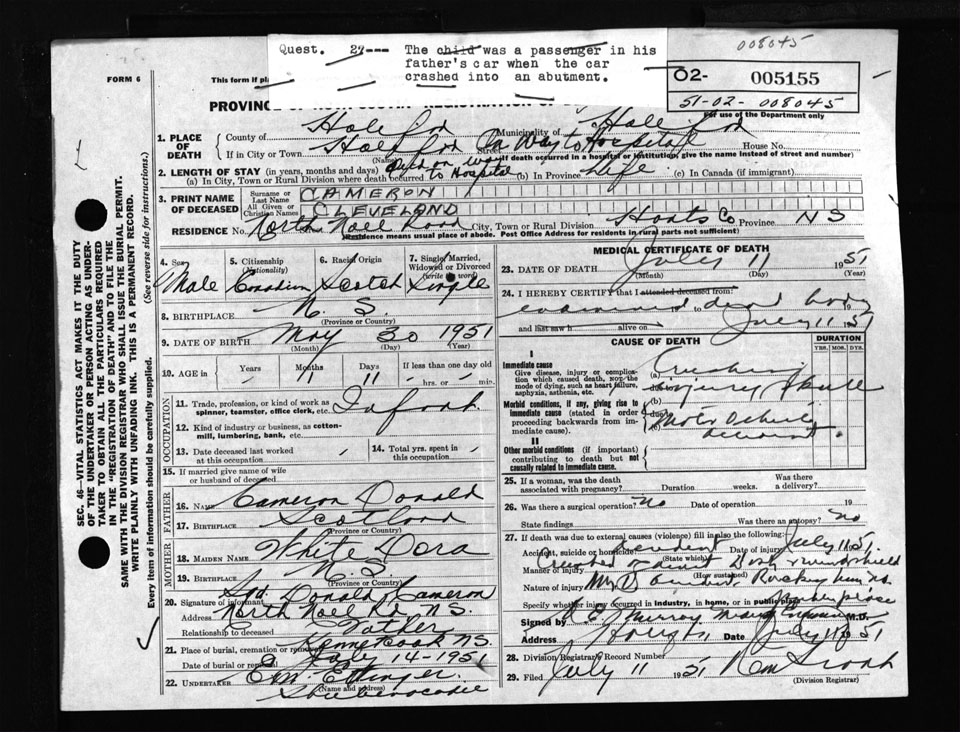 Quest. 27--- The child was a passenger in his
father's car when the car
crashed into an abutment.
008045
02- 005155
51-02-008045
For use of the Department only
FORM 6
This form if
PROVINC
1. PLACE OF DEATH
County of Municipality of
If in City or Town Street On Way to Hospital House No.
(Name) (If death occurred in a hospital or institution, give the name instead of street and number)
2. LENGTH OF STAY (in years, months and days)
(a) In City, Town or Rural Division where death occurred to Hospital (b) In Province Life (c) In Canada (if immigrant)
3. PRINT NAME OF DECEASED
Surname or Last Name CAMERON
All Given or Christian Names CLEVELAND
RESIDENCE No. North Noel Road City, Town or Rural Division Hants Co Province NS
(Residence means usual place of abode. Post Office Address for residents in rural parts not sufficient)
4. Sex 5. Citizenship (Nationality) 6. Racial Origin 7. Single, Married, Widowed or Divorced (write word)
Male Canadian Scotch Single
8. BIRTHPLACE N. S.
(Province or Country)
9. DATE OF BIRTH May 30 1951
(Month) (Day) (Year)
10. AGE in Years Months Days If less than one day old
11 11 hrs. or min.
OCCUPATION
11. Trade, profession, or kind of work as spinner, teamster, office clerk, etc. Infant.
12. Kind of industry or business, as cotton-mill, lumbering, bank, etc.
13. Date deceased last worked at this occupation 14. Total yrs. spent in this occupation
15. If married give name of wife or husband of deceased
FATHER
16. Name Cameron Donald
17. BIRTHPLACE Scotland
(Province or Country)
MOTHER
18. MAIDEN NAME White Dora
19. BIRTHPLACE N. S.
(Province or Country)
20. Signature of informant Sgd. Donald Cameron
Address North Noel Rd, N S.
Relationship to deceased Father
21. Place of burial, cremation or removal Kennetcook N S.
Date of burial or removal July 14-1951
22. UNDERTAKER
(Name and address) Shubenacadie
MEDICAL CERTIFICATE OF DEATH
23. DATE OF DEATH July 11 1951
(Month) (Day) (Year)
24. I HEREBY CERTIFY that I attended deceased from:
examined dead body
19 to 19
and last saw h alive on July 11 1951
CAUSE OF DEATH DURATION
YRS. MOS. DYS.
I
Immediate cause
Give disease, injury or complication which caused death, NOT the mode of dying, such as heart failure, asphyxia, asthenia, etc.
(a) Crushing
injury Skull
Morbid conditions, if any, giving rise to immediate cause (stated in order proceeding backwards from immediate cause).
(b)
due
(c) Motor Vehicle
accident.
II
Other morbid conditions (if important) contributing to death but not causally related to immediate cause.
25. If a woman, was the death associated with pregnancy? Duration weeks. Was there a delivery?
26. Was there a surgical operation? No Date of operation 19
State findings Was there an autopsy? No
27. If death was due to external causes (violence) fill in also the following:
Accident, suicide or homicide? accident Date of injury July 11 1951
(State which)
Manner of injury Crushed against Dash & windshield
(How sustained)
Nature of injury
Specify whether injury occurred in industry, in home, or in public place
Signed by M.D.
Address Date July 11 1951
28. Division Registrar's Record Number
29. Filed July 11 1951
(Division Registrar)
SEC. 46—VITAL STATISTICS ACT MAKES IT THE DUTY
OF THE UNDERTAKER OR PERSON ACTING AS UNDER-
TAKER TO OBTAIN ALL THE PARTICULARS REQUIRED
IN THE "REGISTRATION OF DEATH" AND TO FILE THE
SAME WITH THE DIVISION REGISTRAR WHO SHALL ISSUE THE BURIAL PERMIT.
WRITE PLAINLY WITH UNFADING INK. THIS IS A PERMANENT RECORD.
Every item of information should be carefully supplied. (See reverse side for instructions.)